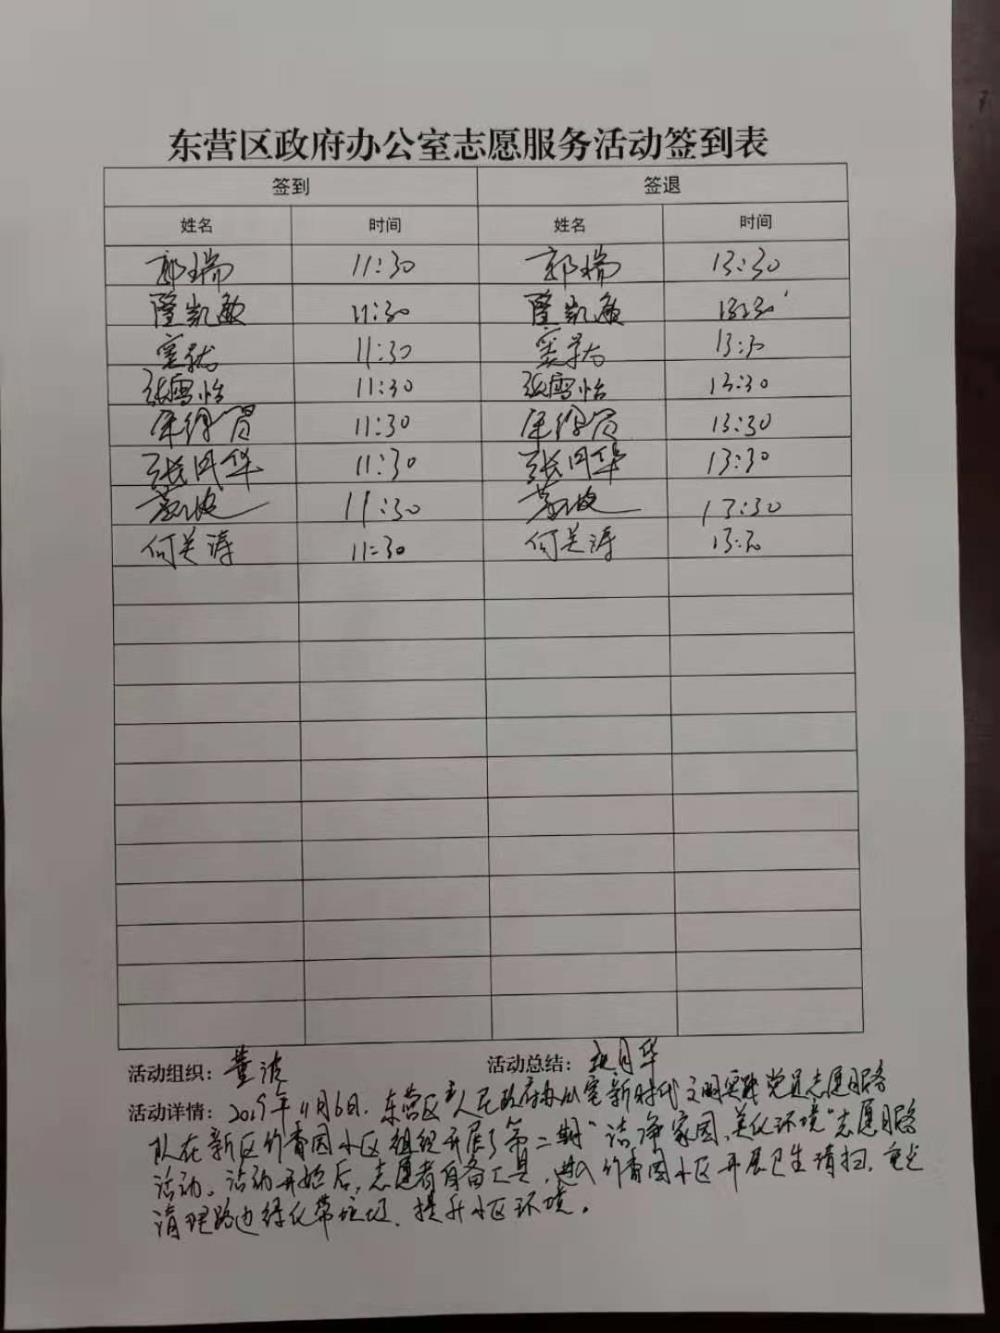 东营区政府办公室志愿服务活动签到表
签到 签退
姓名 时间 姓名 时间
郭瑞 11:30 郭瑞 13:30
隆凯敏 11:30 隆凯敏 13:30
11:30 13:30
张雪怡 11:30 张雪怡 13:30
11:30 13:30
张月华 11:30 张月华 13:30
董波 11:30 董波 13:30
何关涛 11:30 何关涛 13:30
活动组织：董波 活动总结：张月华
活动详情：2019年11月6日，东营区人民政府办公室新时代文明实践党员志愿服务
队在新区竹香园小区组织开展了第二期“洁净家园，美化环境”志愿服务
活动。活动开始后，志愿者自备工具，进入竹香园小区开展卫生清扫，重点
清理路边绿化带垃圾，提升小区环境。